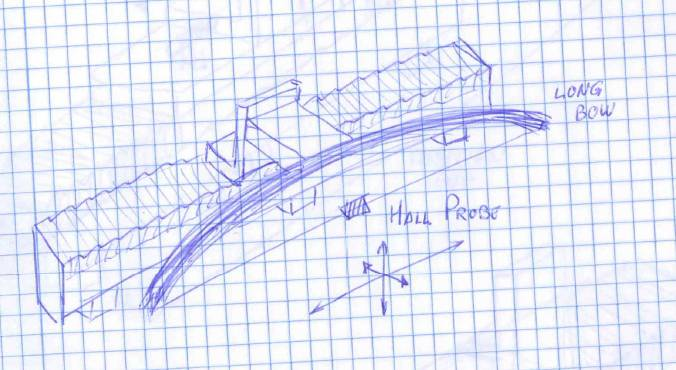 LONG
BOW
HALL PROBE